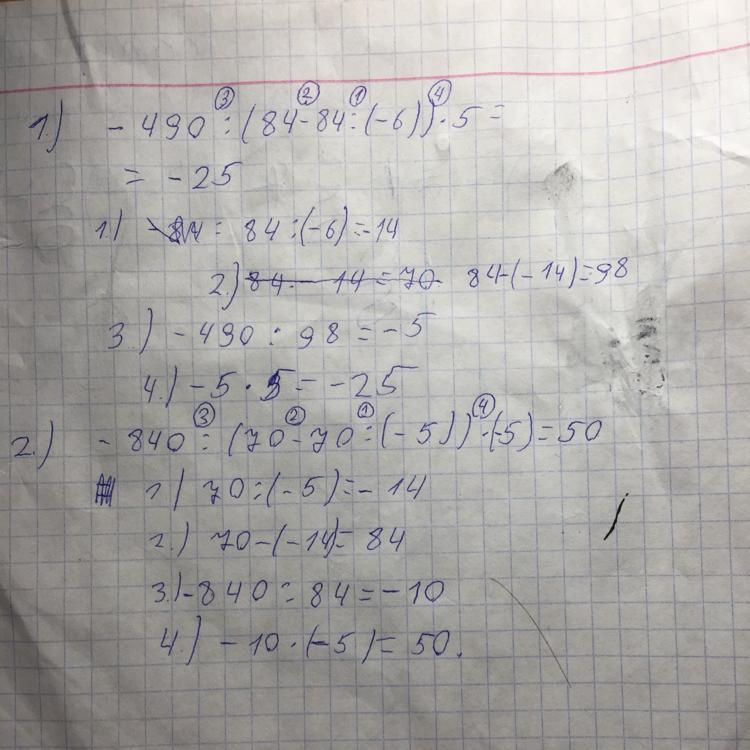 ③ ② ① ④
1.) - 490 : (84-84:(-6))·5=
= -25
1.) 84:(-6)=-14
2.) 84 - 14=70 84-(-14)=98
3.) -490 : 98 = -5
4.) -5·5= -25
③ ② ① ④
2.) - 840 : (70-70:(-5))·(-5)=50
1.) 70:(-5)=-14
2.) 70-(-14)= 84
3.) -840 : 84 = -10
4.) -10·(-5)= 50.